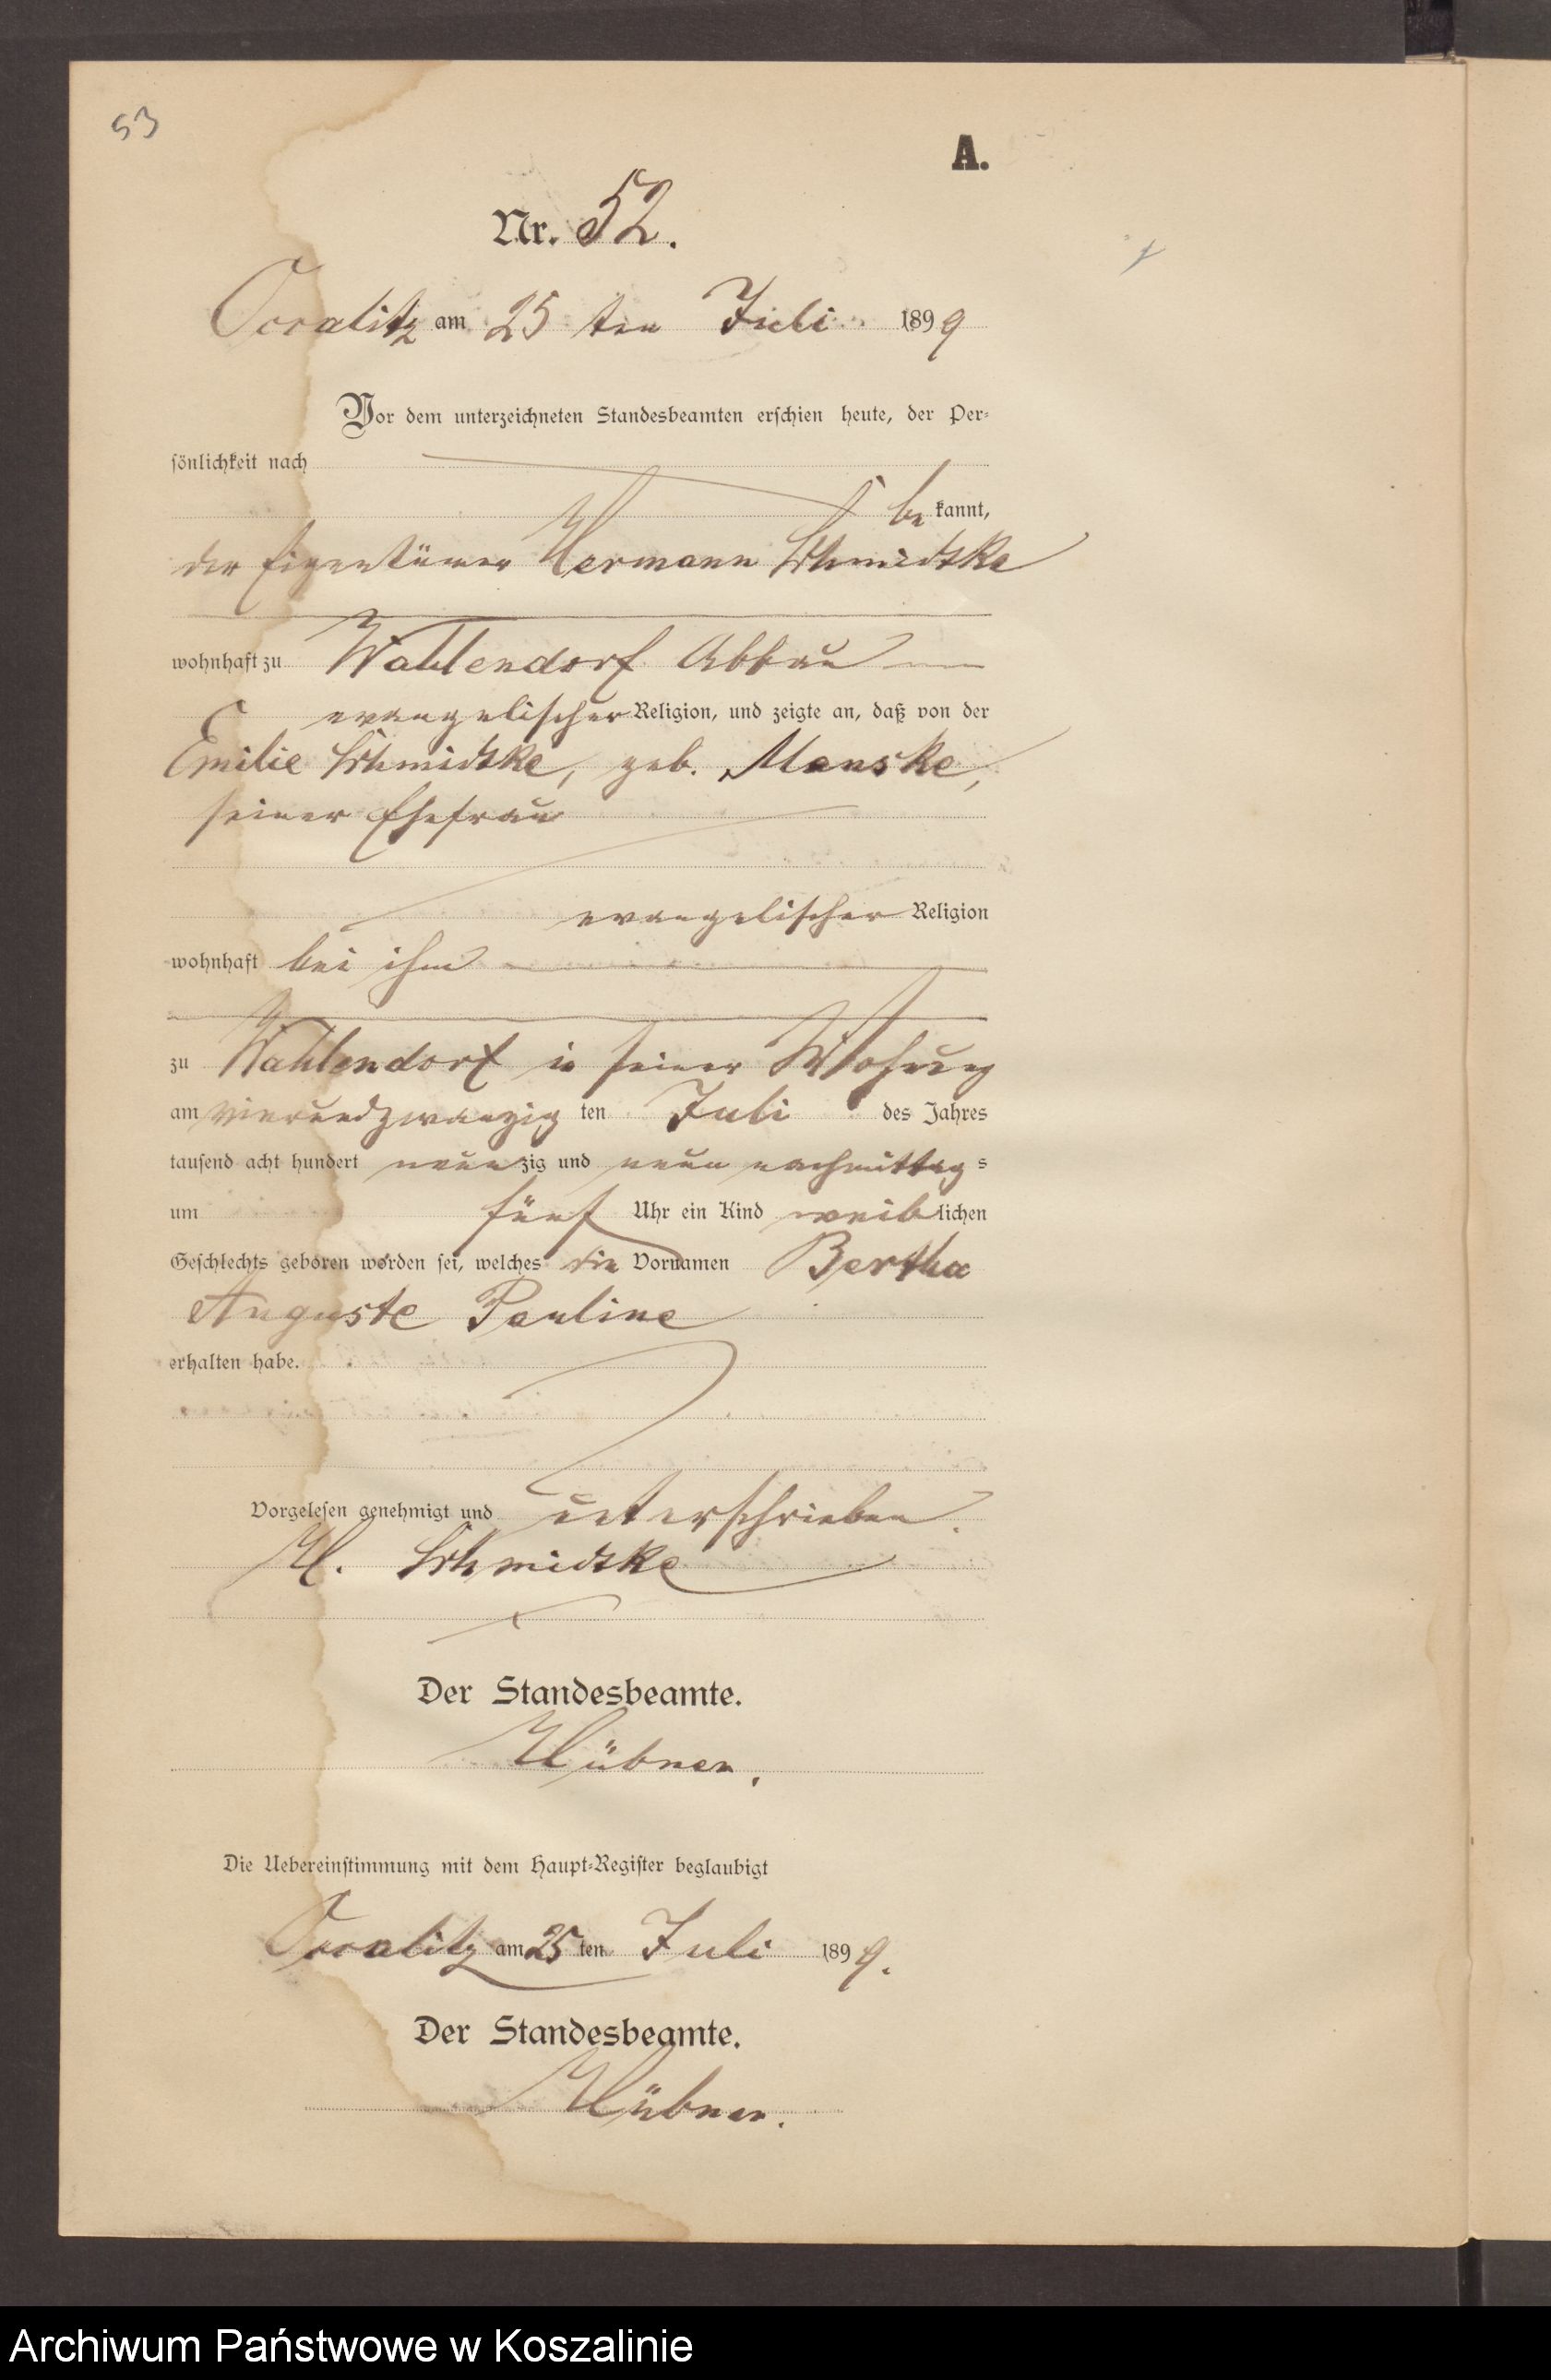 53
A.
Nr. 52.
Occalitz am 25 ten Juli 1899
Vor dem unterzeichneten Standesbeamten erschien heute, der Per-
sönlichkeit nach
be kannt,
der Eigentümer Hermann Schmidtke
wohnhaft zu Wahlendorf Abbau
evangelischer Religion, und zeigte an, daß von der
Emilie Schmidtke, geb. Manske,
seiner Ehefrau
evangelischer Religion
wohnhaft bei ihm
zu Wahlendorf in seiner Wohnung
am vierundzwanzig ten Juli des Jahres
tausend acht hundert neunzig und neun nachmittag s
um fünf Uhr ein Kind weiblichen
Geschlechts geboren worden sei, welches die Vornamen Bertha
Auguste Pauline
erhalten habe.
Vorgelesen genehmigt und unterschrieben.
H. Schmidtke
Der Standesbeamte.
Hübner.
Die Uebereinstimmung mit dem Haupt-Register beglaubigt
Occalitz am 25 ten Juli 1899.
Der Standesbeamte.
Hübner.
Archiwum Państwowe w Koszalinie